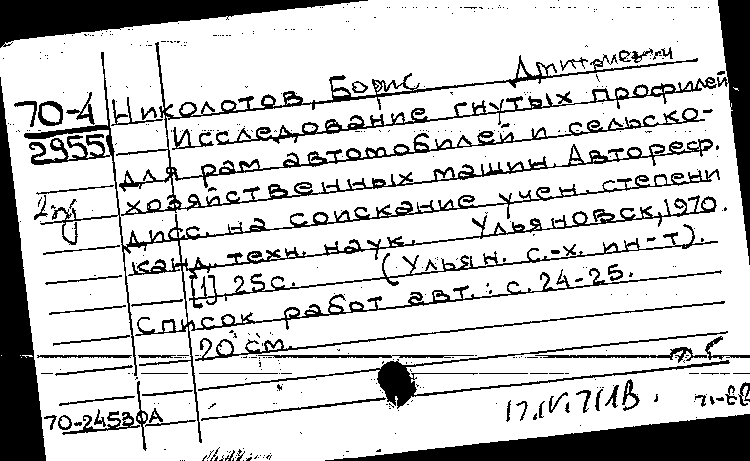 70-4
2955
Николотов, Борис Дмитриевич
Исследование гнутых профилей
для рам автомобилей и сельско-
хозяйственных машин. Автореф.
дисс. на соискание учен. степени
канд. техн. наук. Ульяновск, 1970.
[1], 25с. (Ульян. с.-х. ин-т).
Список работ авт.: с. 24-25.
20 см.
70-24530А
17.IV.71 1В.